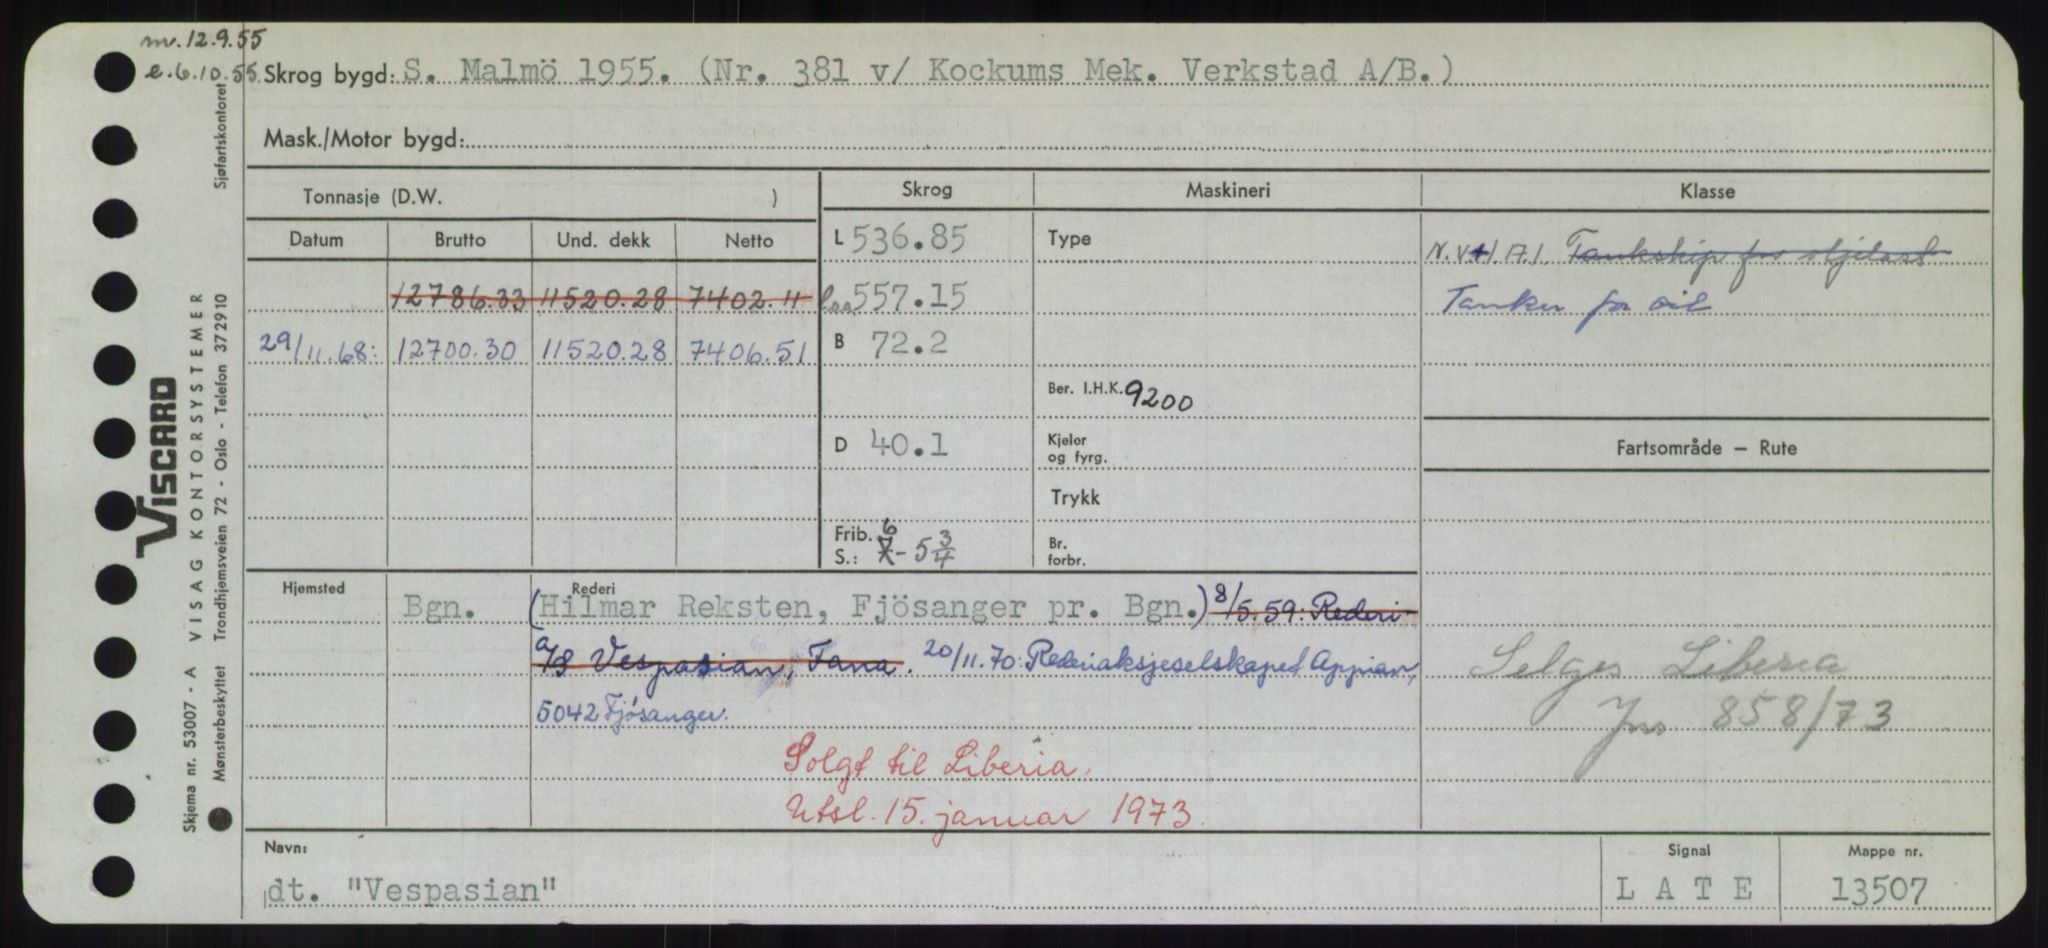 m. 12.9.55
e. 6.10.55. Skrog bygd: S. Malmö 1955. (Nr. 381 v/ Kockums Mek. Verkstad A/B.)
Mask./Motor bygd:
Tonnasje (D.W. )
Skrog
Maskineri
Klasse
Datum Brutto Und. dekk Netto
L 536.85
Type
N.V. +1 171. Tankskip for oljelast
12786.33 11520.28 7402.11
loa 557.15
Tanker for oil
29/11.68: 12700.30 11520.28 7406.51
B 72.2
Ber. I.H.K. 9200
D 40.1
Kjeler
og fyrg.
Fartsområde – Rute
Trykk
Frib. 6
S.: 7-5 3/4
Br.
forbr.
Hjemsted
Rederi
Bgn. (Hilmar Reksten, Fjösanger pr. Bgn.) 8/5.59: Rederi
a/S Vespasian, Fana. 20/11.70: Rederiaksjeselskapet Appian,
5042 Fjösanger.
Selges Liberia
Jnr 858/73
Solgt til Liberia.
Utsl. 15. januar 1973.
Navn:
dt. "Vespasian"
Signal
LATE
Mappe nr.
13507
VISCARD
Skjema nr. 53007 - A VISAG KONTORSYSTEMER
Mønsterbeskyttet Trondhjemsveien 72 - Oslo - Telefon 372910 Sjøfartskontoret